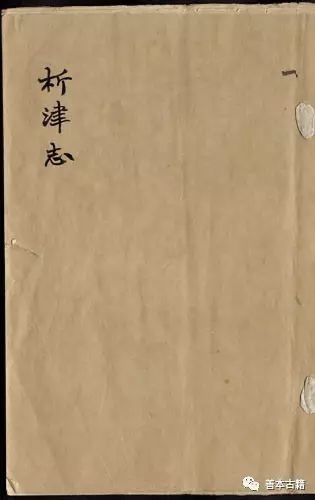 析津志
一
善本古籍